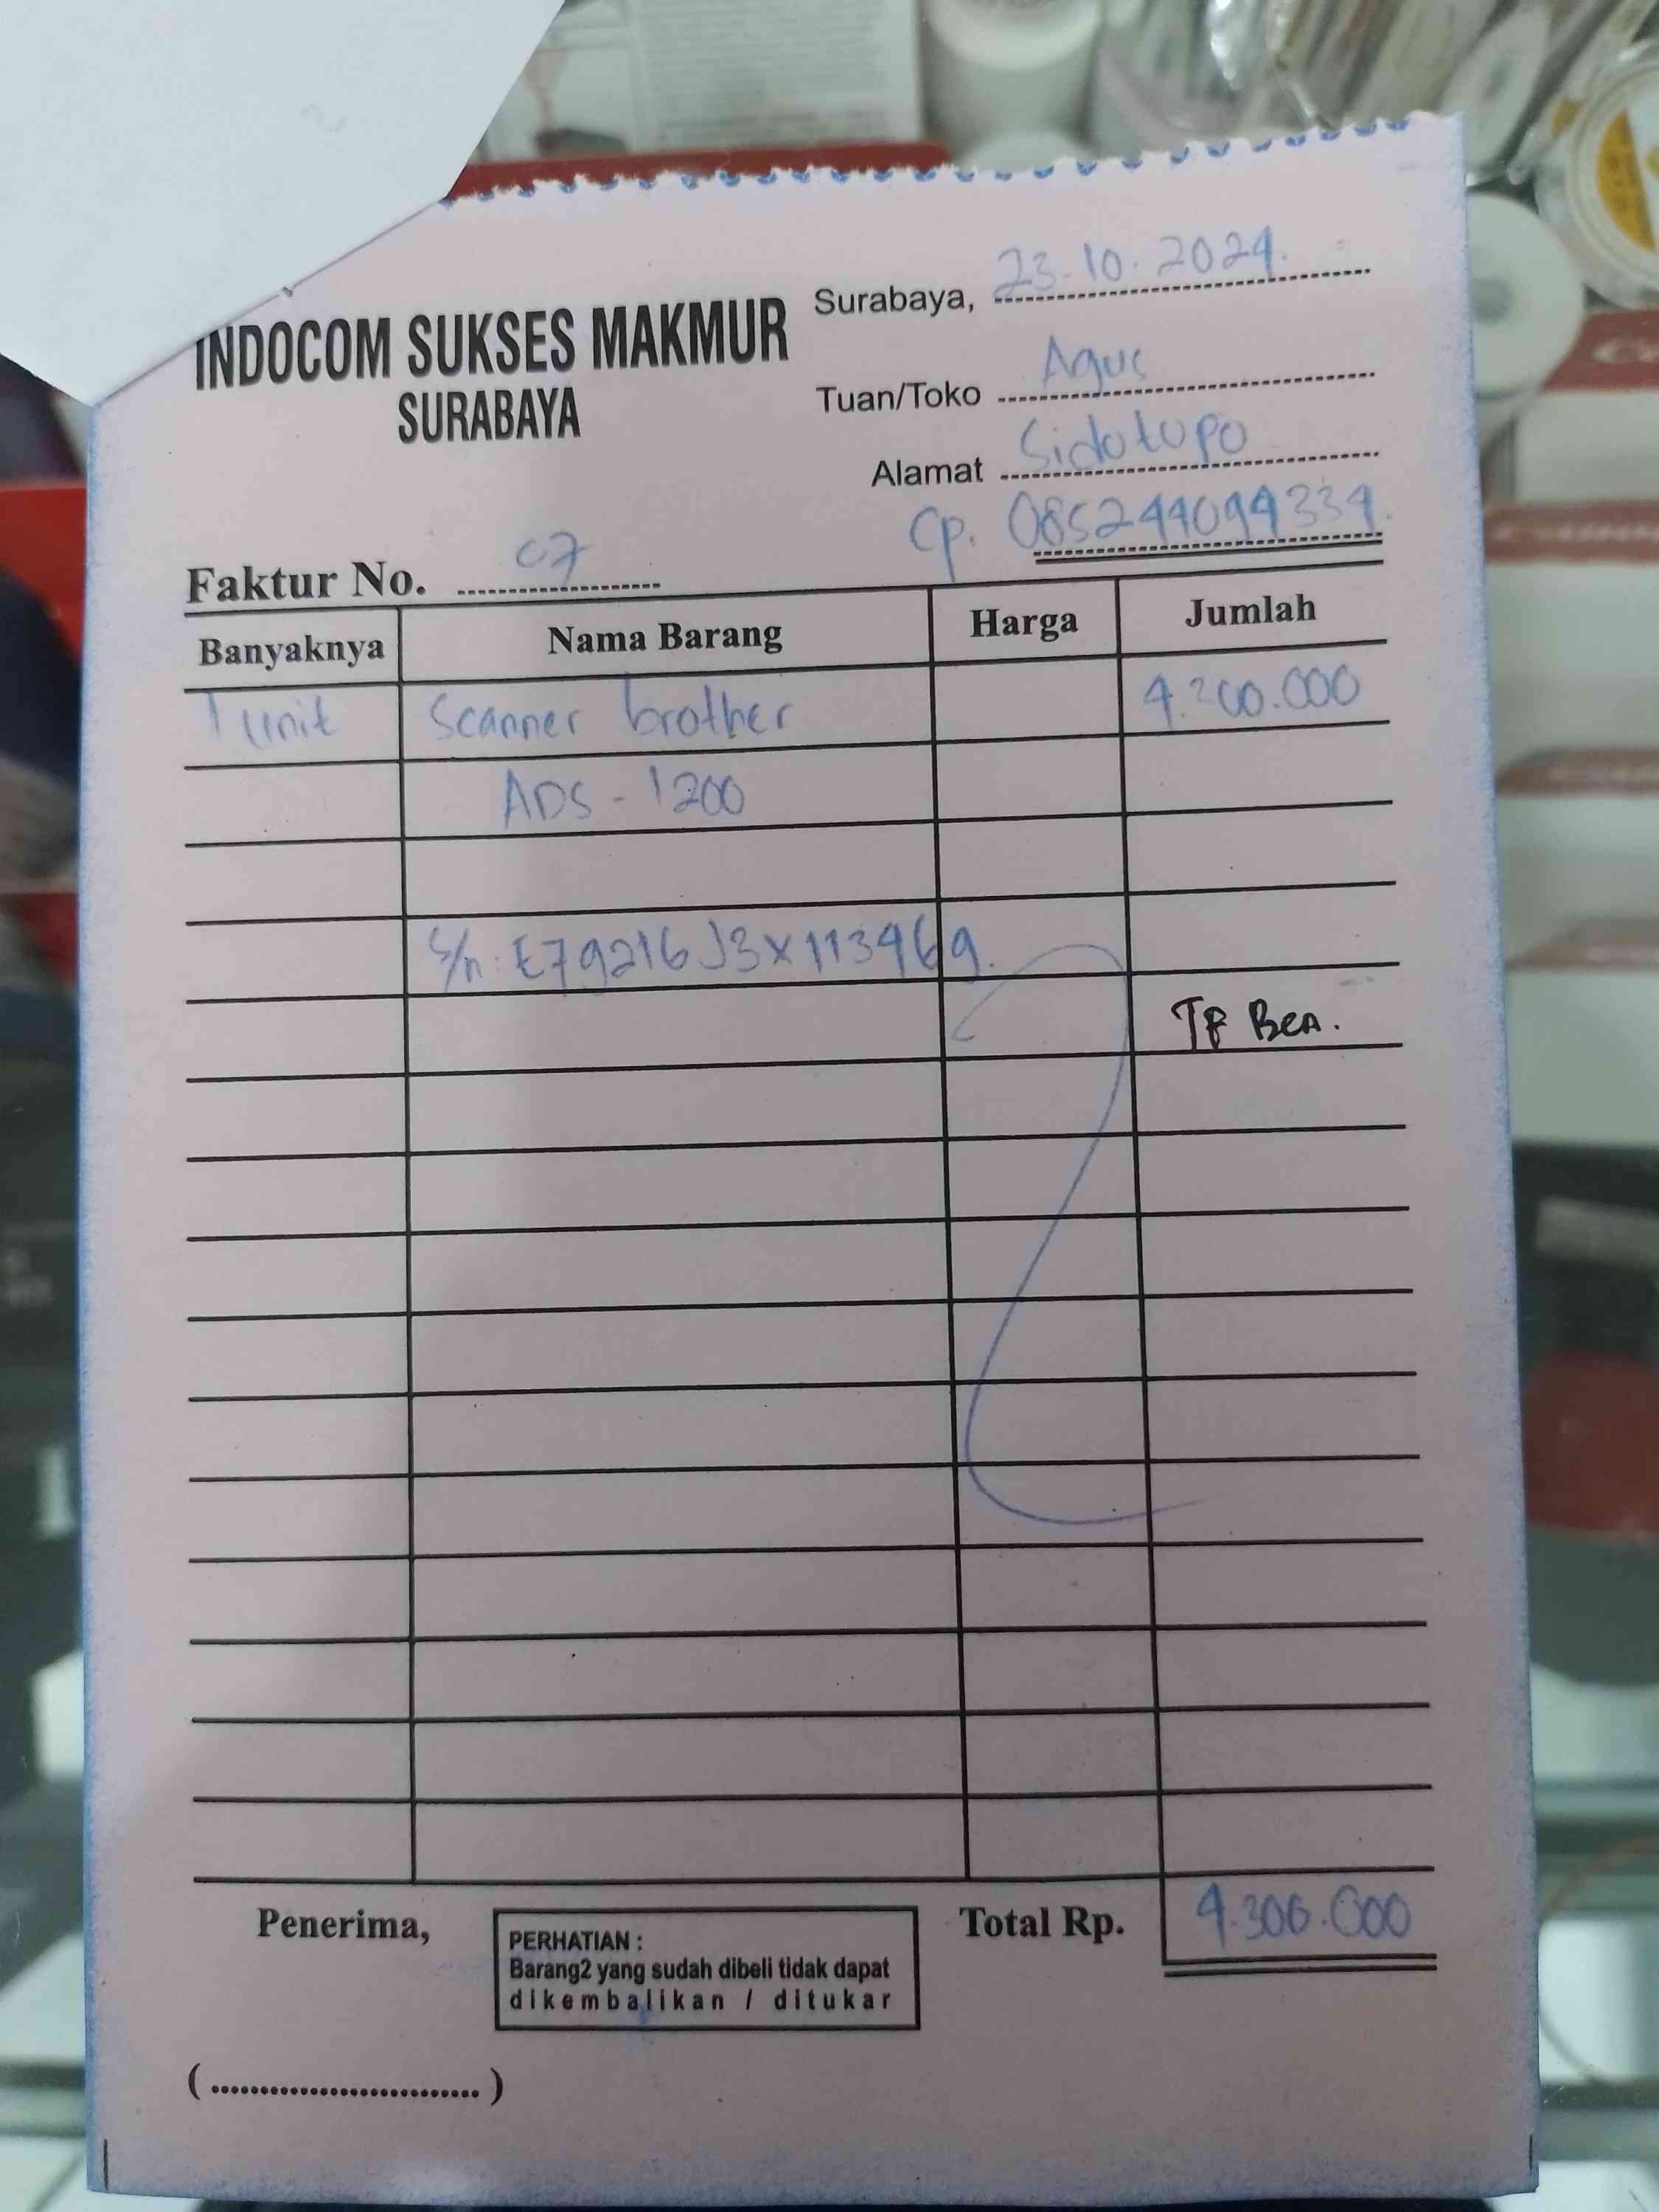 INDOCOM SUKSES MAKMUR
SURABAYA
Surabaya, 23.10.2024.
Tuan/Toko Agus
Alamat Sidotopo
Cp. 085244094334.
Faktur No. 07
Banyaknya Nama Barang Harga Jumlah
1 unit Scanner brother 4.200.000
ADS - 1200
S/n: E79216J3X113469.
TF BCA.
Penerima,
PERHATIAN :
Barang2 yang sudah dibeli tidak dapat
dikembalikan / ditukar
Total Rp. 4.300.000
(............................)